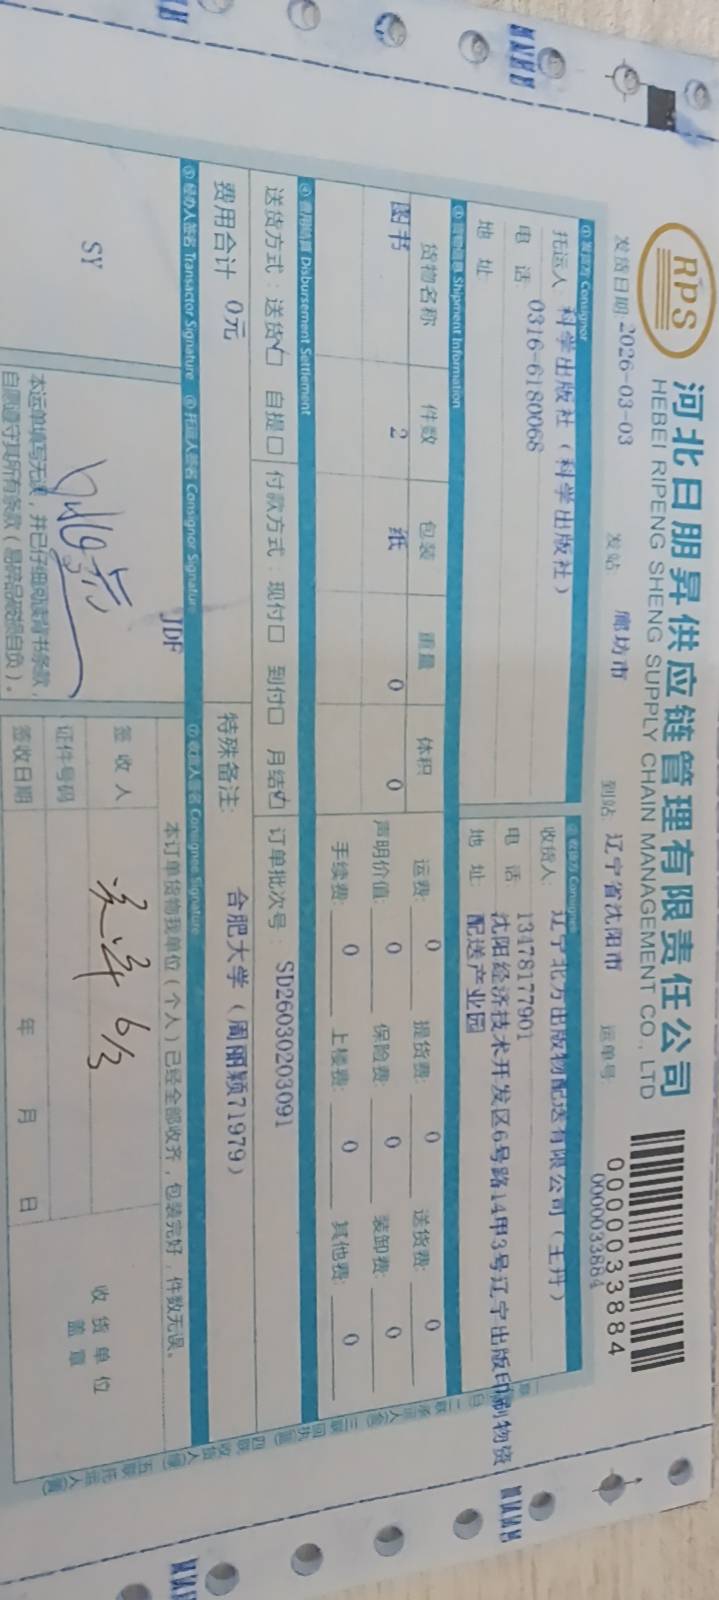 RPS
河北日朋昇供应链管理有限责任公司
HEBEI RIPENG SHENG SUPPLY CHAIN MANAGEMENT CO., LTD
0000033884
0000033884
发货日期: 2026-03-03 发站: 廊坊市 到站: 辽宁省沈阳市 运单号:
① 发货方 Consignor
托运人: 科学出版社（科学出版社）
电 话: 0316-6180068
地 址:
② 收货方 Consignee
收货人: 辽宁北方出版物配送有限公司（王丹）
电 话: 13478177901
地 址: 沈阳经济技术开发区6号路14甲3号辽宁出版印刷物资
配送产业园
③ 货物信息 Shipment Information
货物名称 件数 包装 重量 体积
图书 2 纸 0 0
运费: 0 提货费: 0 送货费: 0
声明价值: 0 保险费: 0 装卸费: 0
手续费: 0 上楼费: 0 其他费: 0
④ 费用结算 Disbursement Settlement
送货方式: 送货☑ 自提口 付款方式: 现付口 到付口 月结☑ 订单批次号: SD26030203091
费用合计 0元 特殊备注: 合肥大学（周丽颖71979）
⑤ 经办人签名 Transactor Signature ⑥ 托运人签名 Consignor Signature ⑦ 收货人签名 Consignee Signature
SY
JDF
本运单填写无误，并已仔细阅读背书条款，
自愿遵守其所有条款（易碎品破损自负）。
本订单货物我单位（个人）已经全部收齐，包装完好，件数无误。
签 收 人 6/3
证件号码
签收日期 年 月 日
收 货 单 位
盖 章